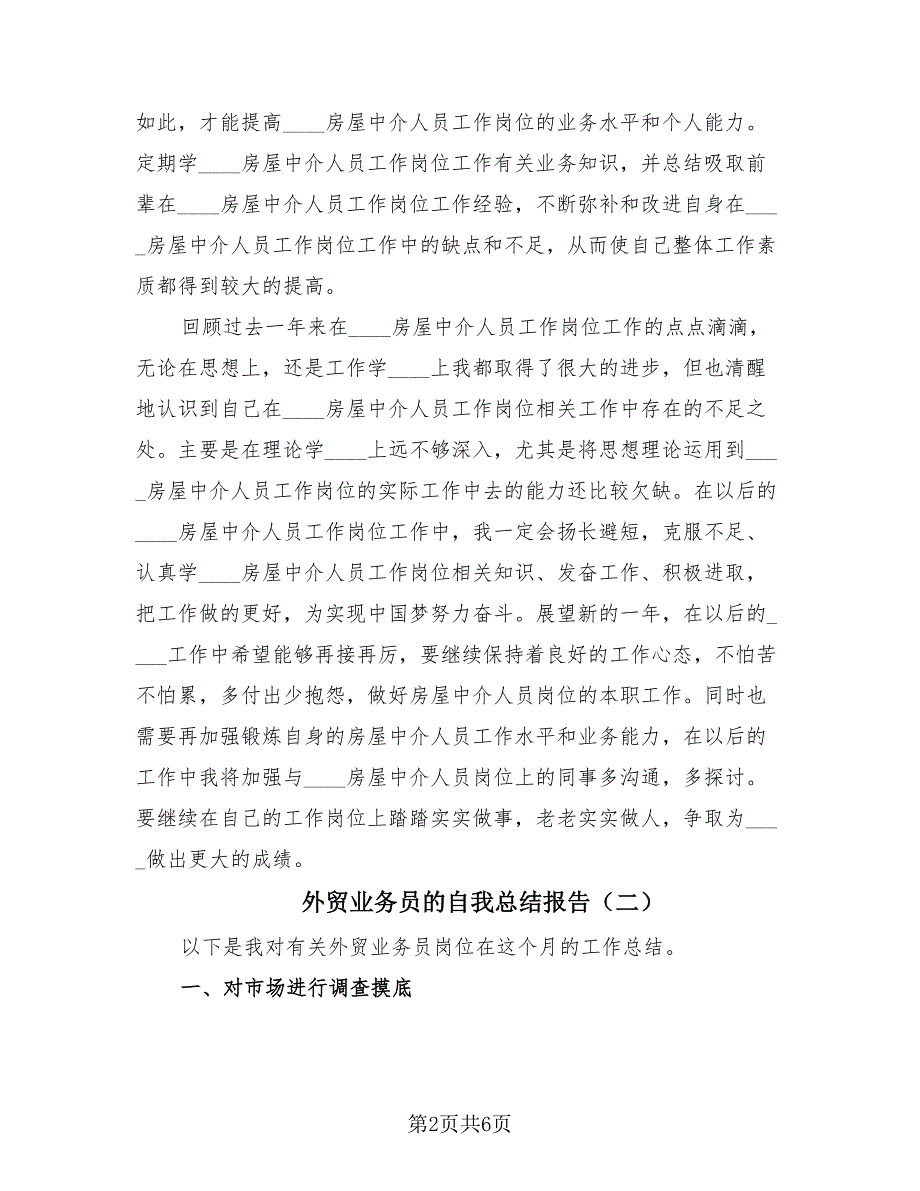 如此，才能提高____房屋中介人员工作岗位的业务水平和个人能力。
定期学____房屋中介人员工作岗位工作有关业务知识，并总结吸取前
辈在____房屋中介人员工作岗位工作经验，不断弥补和改进自身在___
_房屋中介人员工作岗位工作中的缺点和不足，从而使自己整体工作素
质都得到较大的提高。
回顾过去一年来在____房屋中介人员工作岗位工作的点点滴滴，
无论在思想上，还是工作学____上我都取得了很大的进步，但也清醒
地认识到自己在____房屋中介人员工作岗位相关工作中存在的不足之
处。主要是在理论学____上远不够深入，尤其是将思想理论运用到___
_房屋中介人员工作岗位的实际工作中去的能力还比较欠缺。在以后的
____房屋中介人员工作岗位工作中，我一定会扬长避短，克服不足、
认真学____房屋中介人员工作岗位相关知识、发奋工作、积极进取，
把工作做的更好，为实现中国梦努力奋斗。展望新的一年，在以后的_
___工作中希望能够再接再厉，要继续保持着良好的工作心态，不怕苦
不怕累，多付出少抱怨，做好房屋中介人员岗位的本职工作。同时也
需要再加强锻炼自身的房屋中介人员工作水平和业务能力，在以后的
工作中我将加强与____房屋中介人员岗位上的同事多沟通，多探讨。
要继续在自己的工作岗位上踏踏实实做事，老老实实做人，争取为___
_做出更大的成绩。
外贸业务员的自我总结报告（二）
以下是我对有关外贸业务员岗位在这个月的工作总结。
一、对市场进行调查摸底
第2页共6页